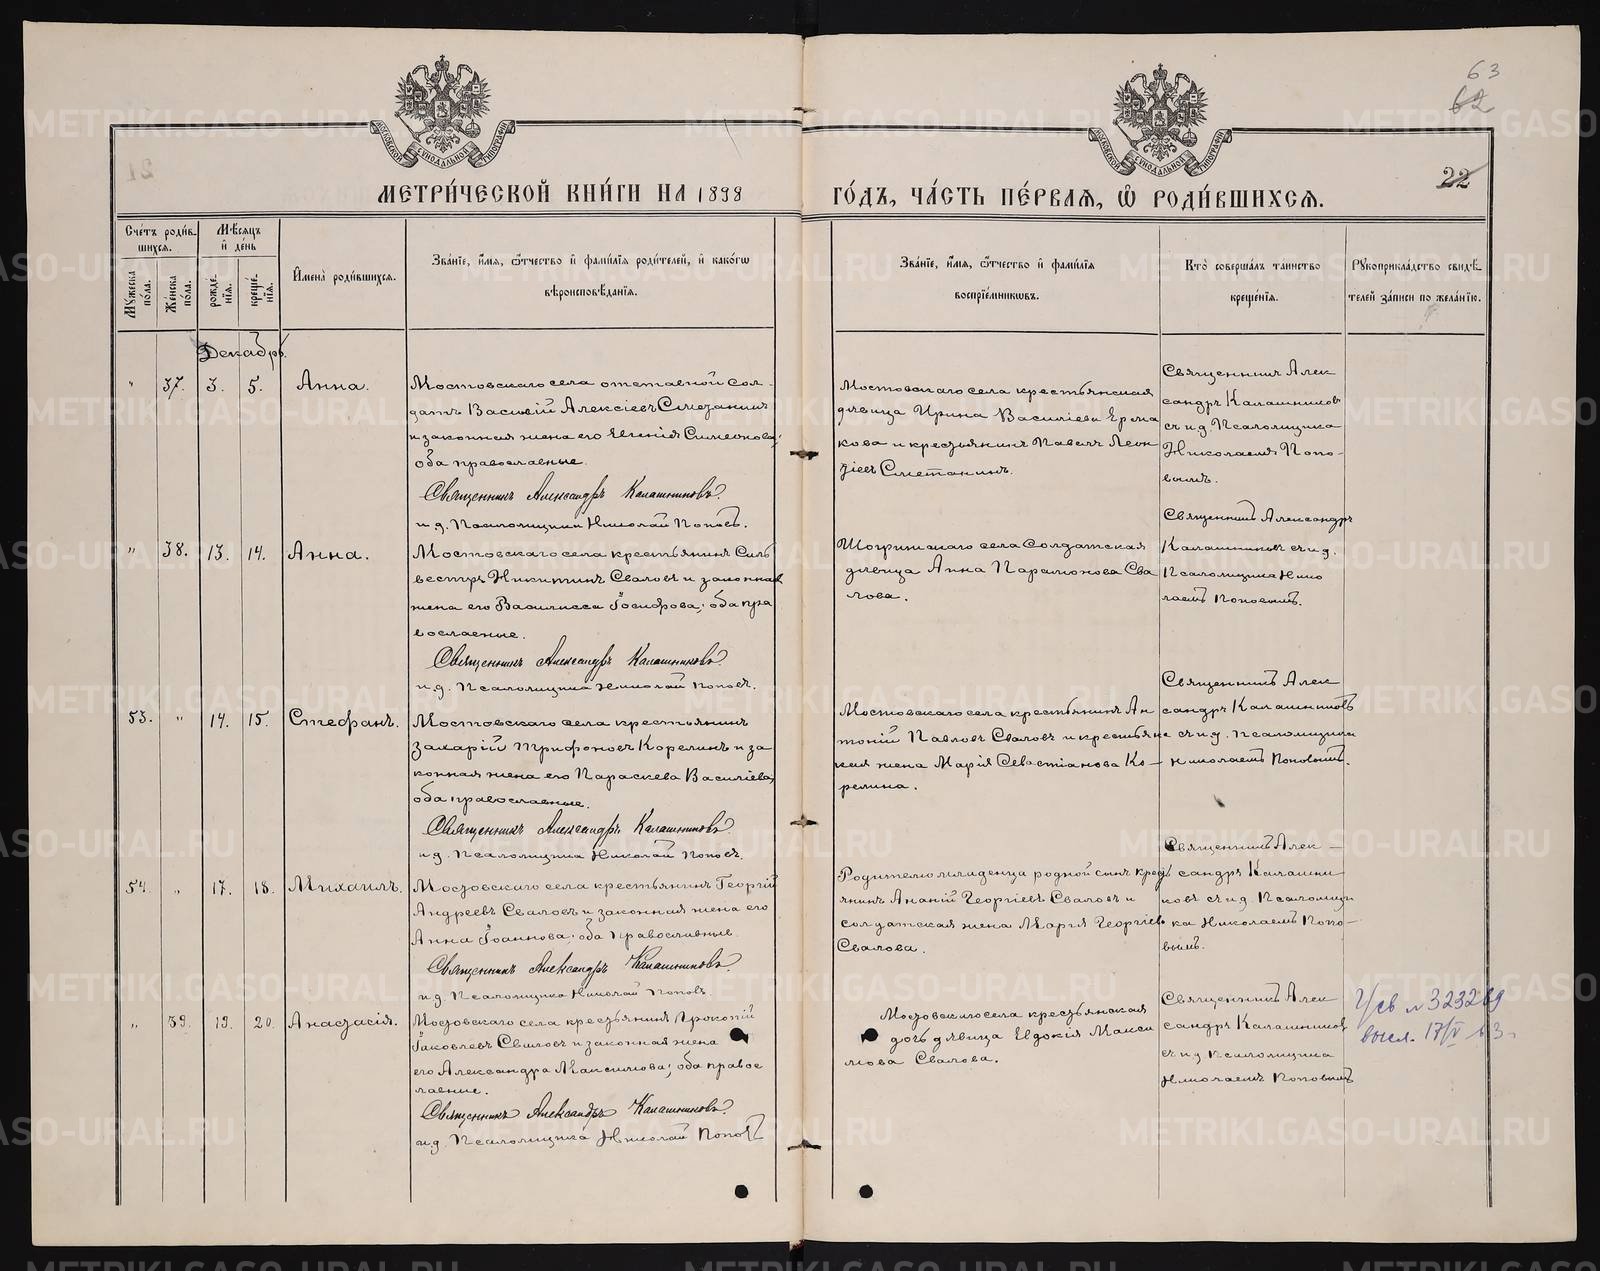 63
62
22
МЕТРИ́ЧЕСКОЙ КНИ́ГИ НА 1898
ГО́ДЪ, ЧА́СТЬ ПЕ́РВАЯ, Ѡ РОДИ́ВШИХСЯ.
Счéтъ роди́в-
шихся.
Му́жеска по́ла.
Же́нска по́ла.
Мѣ́сяцъ
и де́нь
рожде́-
нія.
креще́-
нія.
Имена̀ роди́вшихся.
Зва́ніе, и́мя, ѻ́тчество и фами́лія роди́телей, и како́гѡ
вѣроисповѣ́данія.
Зва́ніе, и́мя, ѻ́тчество и фами́лія
воспріе́мникѡвъ.
Кто̀ соверша́лъ та́инство
креще́нія.
Рукоприкла́дство свидѣ́-
телей за́писи по жела́нію.
Декабрь.
" 37. 3. 5. Анна.
Мостовскаго села отставной сол-
датъ Василій Алексіевъ Сметанинъ
и законная жена его Евгенія Симеонова,
оба православные.
Священникъ Александръ Калашниковъ.
и.д. Псаломщика Николай Поповъ.
Мостовскаго села крестьянская
дѣвица Ирина Василіева Ерма
кова и крестьянинъ Павелъ Леон
тіевъ Сметанинъ.
Священникъ Алек
сандръ Калашниковъ
съ и.д. Псаломщика
Николаемъ Попо-
вымъ.
" 38. 13. 14. Анна.
Мостовскаго села крестьянинъ Силь
вестръ Никитинъ Сваловъ и законная
жена его Василисса Іосифова; оба пра
вославные.
Священникъ Александръ Калашниковъ.
и.д. Псаломщика Николай Поповъ.
села Солдатская
дѣвица Анна Парамонова Сва
лова.
Священникъ Александръ
Калашниковъ съ и.д.
Псаломщика Нико
лаемъ Поповымъ.
53. " 14. 15. Стефанъ.
Мостовскаго села крестьянинъ
Захарій Трифоновъ Корелинъ и за
конная жена его Параскева Василіева,
оба православные.
Священникъ Александръ Калашниковъ.
и.д. Псаломщика Николай Поповъ.
Мостовскаго села крестьянинъ Ан
тоній Павловъ Сваловъ и крестьянс
кая жена Марія Севастіанова Ко-
релина.
Священникъ Алек
сандръ Калашниковъ
съ и.д. Псаломщика
Николаемъ Поповымъ.
54. " 17. 18. Михаилъ.
Мостовскаго села крестьянинъ Георгій
Андреевъ Сваловъ и законная жена его
Анна Іоаннова; оба православные
Священникъ Александръ Калашниковъ.
и.д. Псаломщика Николай Поповъ.
Родителю младенца родной сынъ крест
янинъ Ананій Георгіевъ Сваловъ и
солдатская жена Марія Георгіева
Свалова.
Священникъ Алек-
сандръ Калашни
ковъ съ и.д. Псаломщи
ка Николаемъ Попо-
вымъ.
" 39. 19. 20. Анастасія.
Мостовскаго села крестьянинъ Прокопій
Іаковлевъ Сваловъ и законная жена
его Александра Максимова; оба правос
лавные.
Священникъ Александръ Калашниковъ.
и.д. Псаломщика Николай Поповъ
Мостовскаго села крестьянская
дочь дѣвица Евдокія Макси
мова Свалова.
Священникъ Алек
сандръ Калашниковъ
съ и.д. Псаломщика
Николаемъ Поповымъ
323269